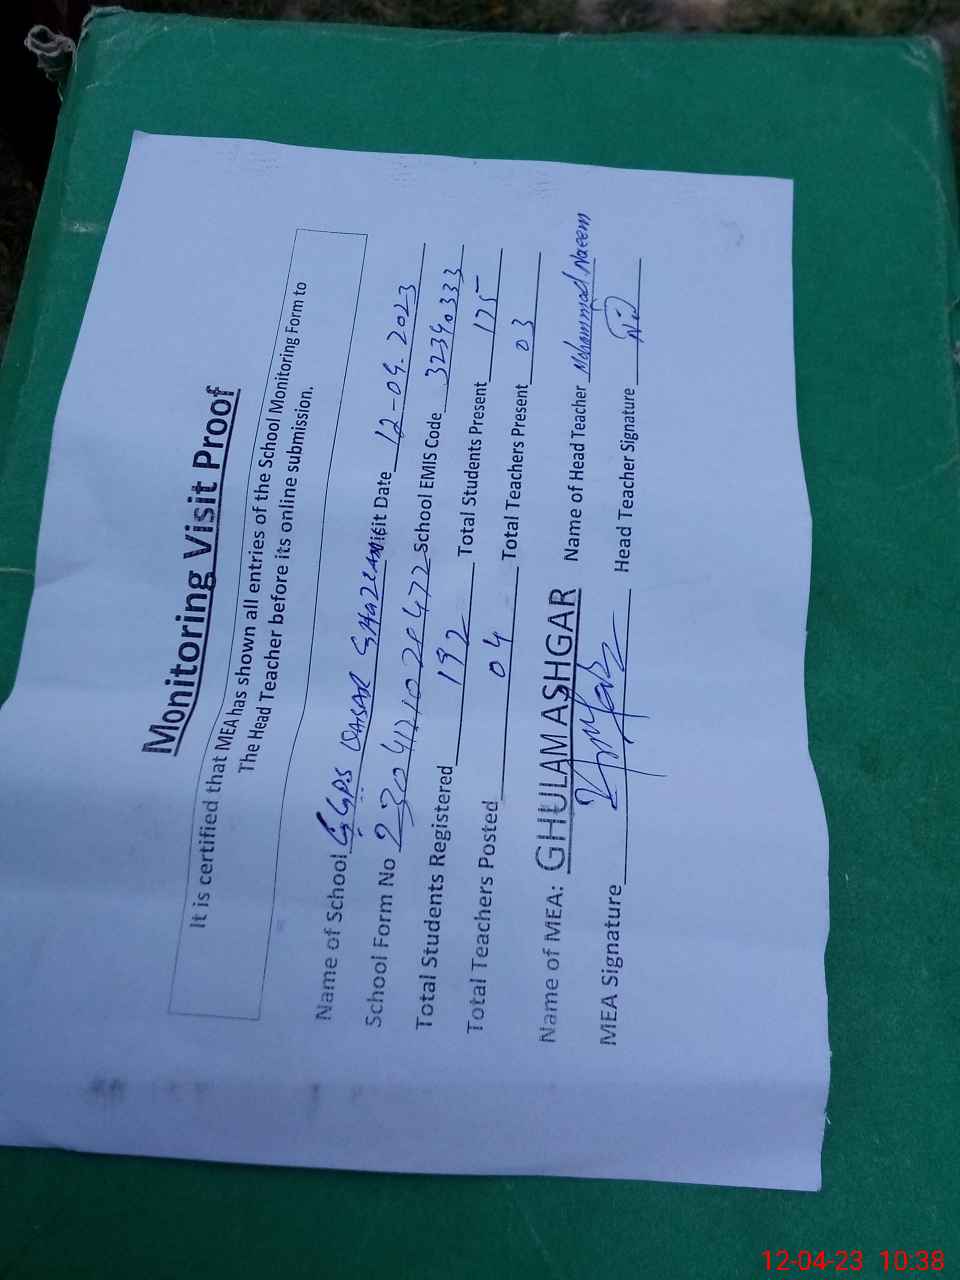 Monitoring Visit Proof
It is certified that MEA has shown all entries of the School Monitoring Form to
The Head Teacher before its online submission.
Name of School GGPS QAISAR Visit Date 12-04-2023
School Form No School EMIS Code 32340333
Total Students Registered 192 Total Students Present 175
Total Teachers Posted 04 Total Teachers Present 03
Name of MEA: GHULAM ASHGAR Name of Head Teacher Mohammad Naeem
MEA Signature Head Teacher Signature
12-04-23 10:38